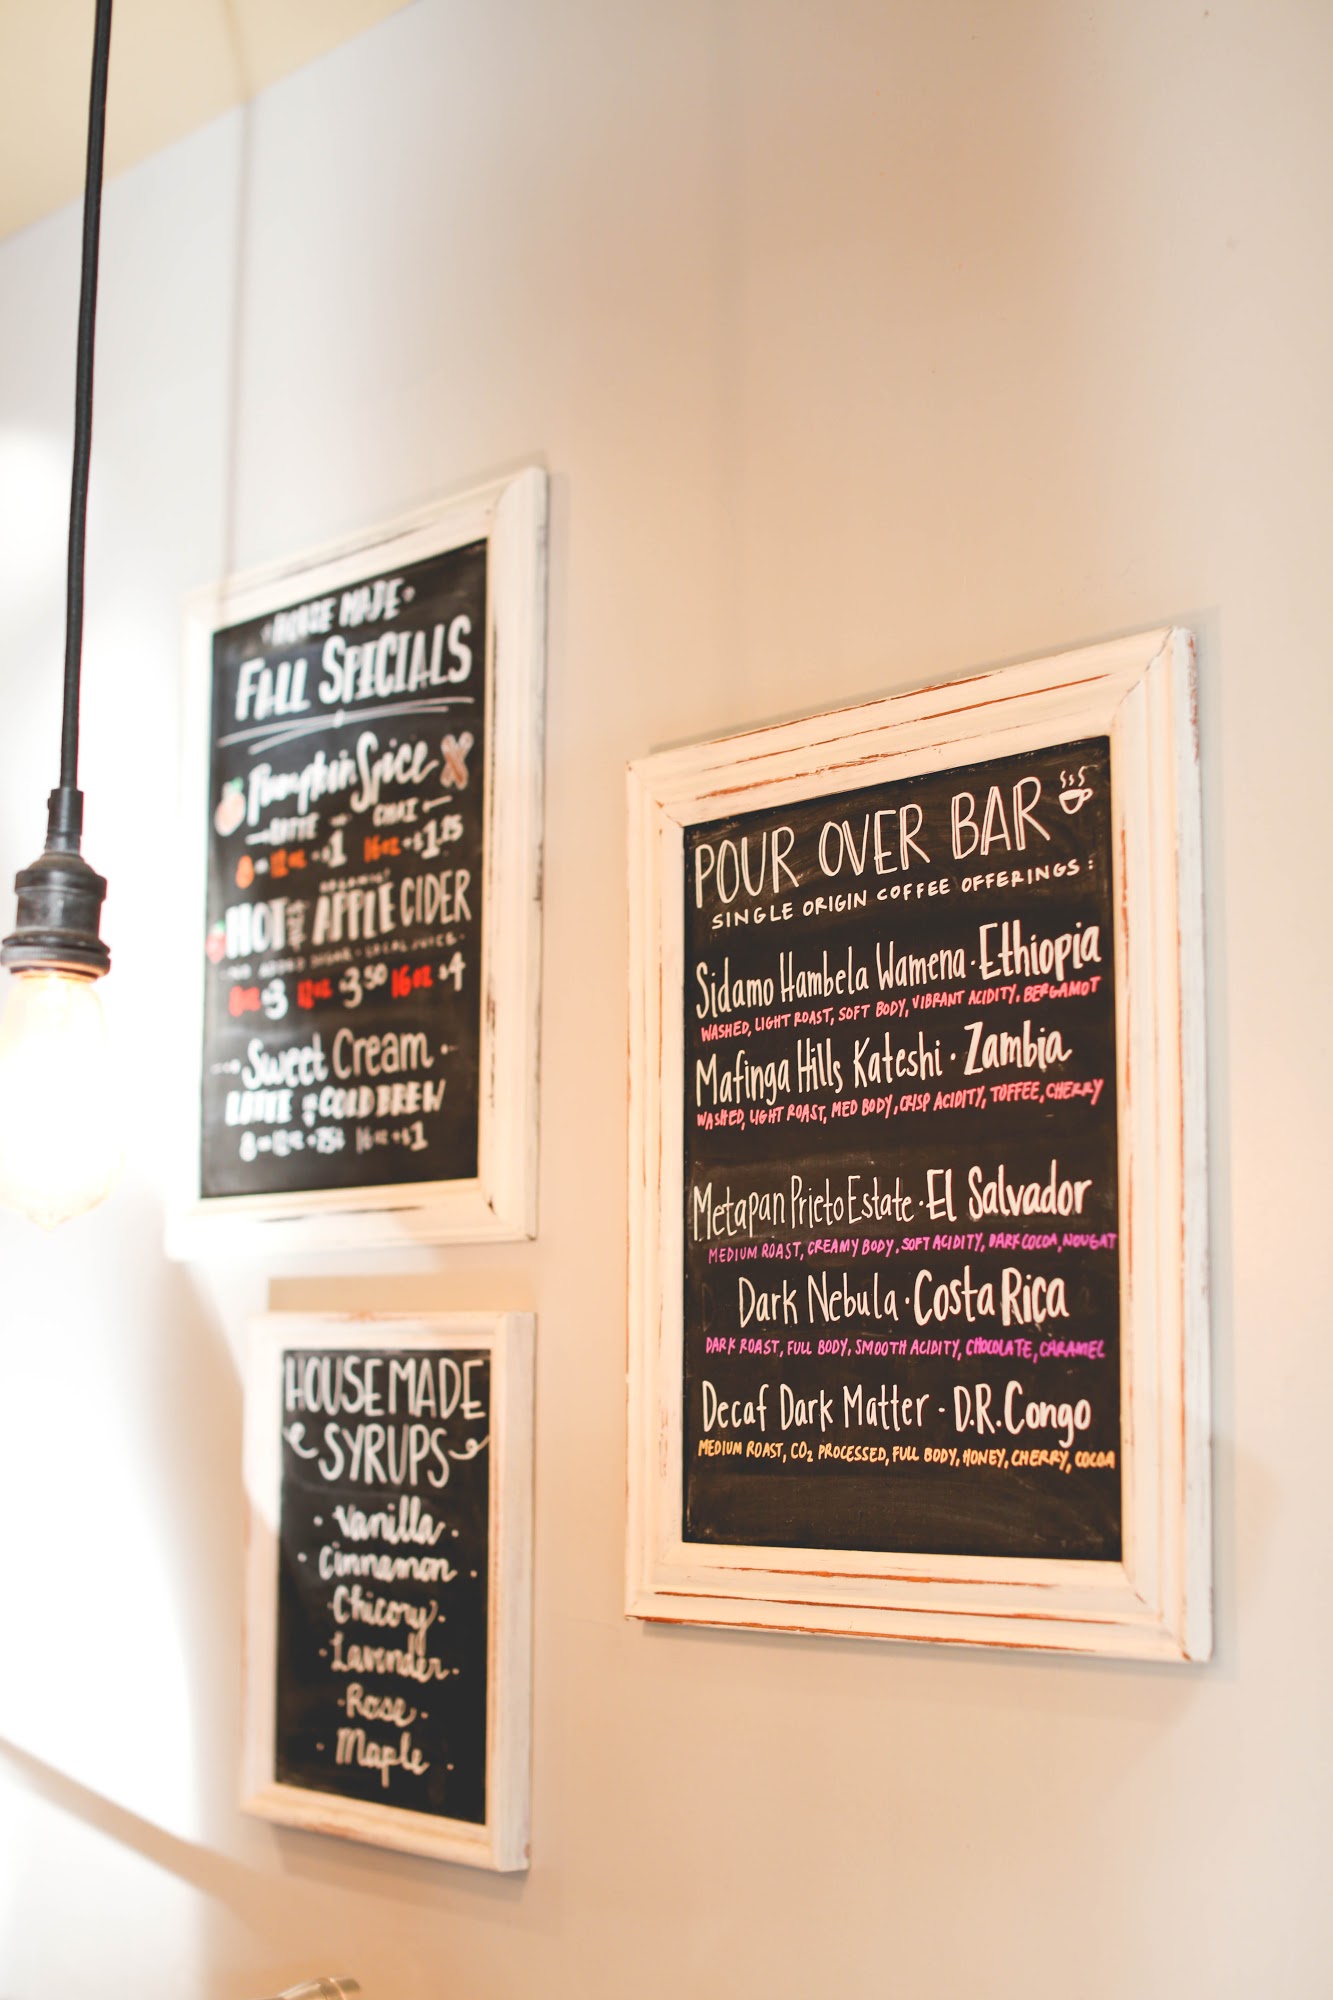 HOUSE MADE
FALL SPECIALS
Pumpkin Spice
LATTE CHAI
8-12oz +$1 16oz +$1.25
HOT APPLE CIDER
NO ADDED SUGAR • LOCAL JUICE
8oz $3 12oz $3.50 16oz $4
Sweet Cream
LATTE COLD BREW
8-12oz +75¢ 16oz +$1
HOUSEMADE
SYRUPS
• Vanilla •
• Cinnamon •
• Chicory •
• Lavender •
• Rose •
• Maple •
POUR OVER BAR
SINGLE ORIGIN COFFEE OFFERINGS:
Sidamo Hambela Wamena • Ethiopia
WASHED, LIGHT ROAST, SOFT BODY, VIBRANT ACIDITY, BERGAMOT
Mafinga Hills Kateshi • Zambia
WASHED, LIGHT ROAST, MED BODY, CRISP ACIDITY, TOFFEE, CHERRY
Metapan Prieto Estate • El Salvador
MEDIUM ROAST, CREAMY BODY, SOFT ACIDITY, DARK COCOA, NOUGAT
Dark Nebula • Costa Rica
DARK ROAST, FULL BODY, SMOOTH ACIDITY, CHOCOLATE, CARAMEL
Decaf Dark Matter - D.R. Congo
MEDIUM ROAST, CO₂ PROCESSED, FULL BODY, HONEY, CHERRY, COCOA